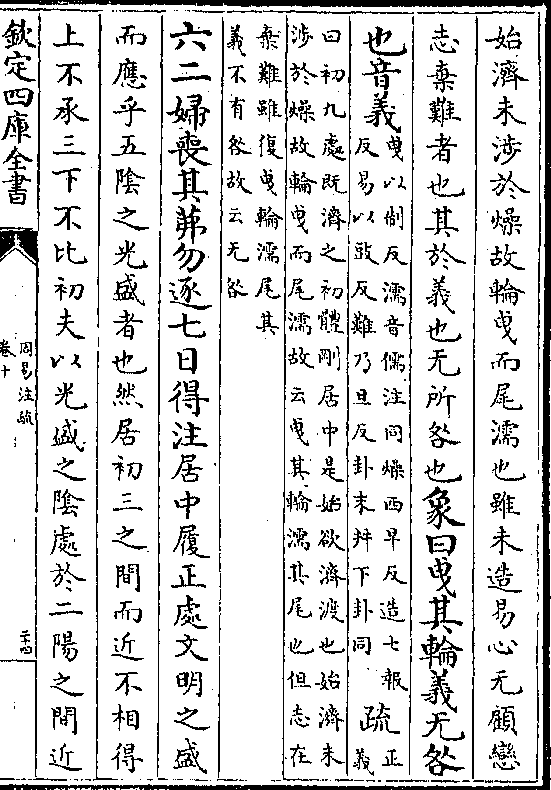 始濟未涉於燥故輪曳而尾濡也雖未造易心无顧戀
志棄難者也其於義也无所咎也象曰曳其輪義无咎
也音義
曳以制反濡音儒注同燥西早反造七報
反易以豉反難乃旦反卦末并下卦同
疏
正
義
曰初九處既濟之初體剛居中是始欲濟渡也始濟未
涉於燥故輪曳而尾濡故云曳其輪濡其尾也但志在
棄難雖復曳輪濡尾其
義不有咎故云无咎
六二婦喪其茀勿逐七日得注居中履正處文明之盛
而應乎五陰之光盛者也然居初三之間而近不相得
上不承三下不比初夫以光盛之陰處於二陽之間近
欽定四庫全書
周易注疏
卷十
二十四